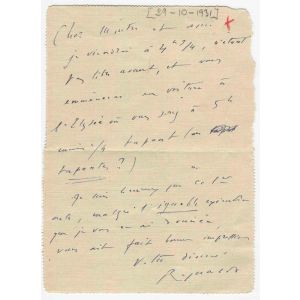 [29-10-1931]
Cher Maître et ami
je viendrai à 4h 3/4, n'étant
pas libre avant, et vous
emmènerai en voiture à
l'Elysée où vous serez à 5h
moins 1/4 tapant (ou
tapantes ?)
Je suis heureux que ce
malgré l'ignoble exécution
que je vous en ai donnée,
vous ait fait bonne impression
Votre dévoué